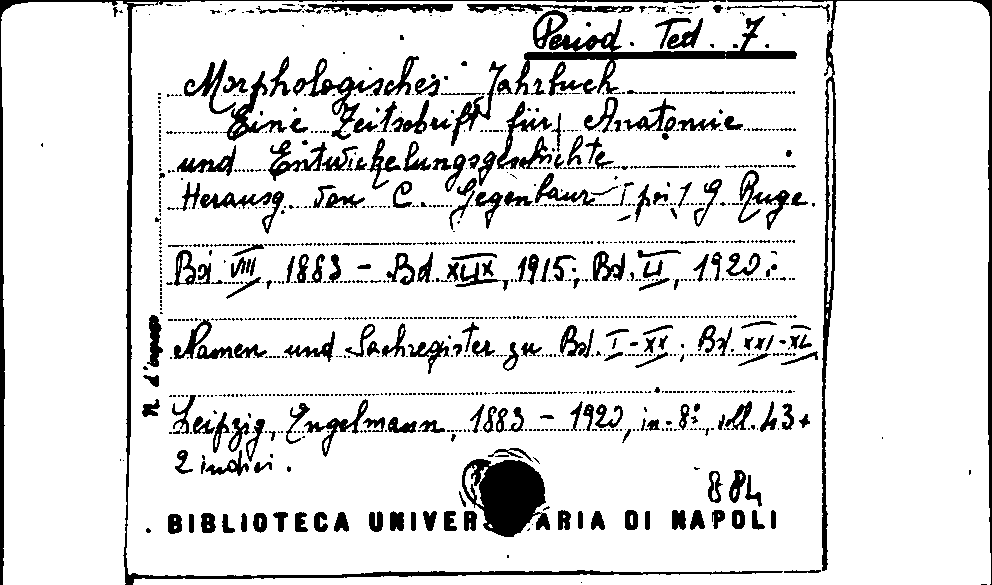 Period. Ted. 7.
Morphologisches Jahrbuch.
Eine Zeitschrift für Anatomie
und Entwickelungsgeschichte
Herausg. von C. Gegenbaur [poi] G. Ruge.
Bd. VIII, 1883 - Bd. XLIX, 1915; Bd. LI, 1920.
Namen und Sachregister zu Bd. I-XX; Bd. XXI-XL
Leipzig, Engelmann, 1883 - 1920, in-8º, voll. 43+
2 indici.
884
BIBLIOTECA UNIVER ARIA DI NAPOLI
N. d'ingresso